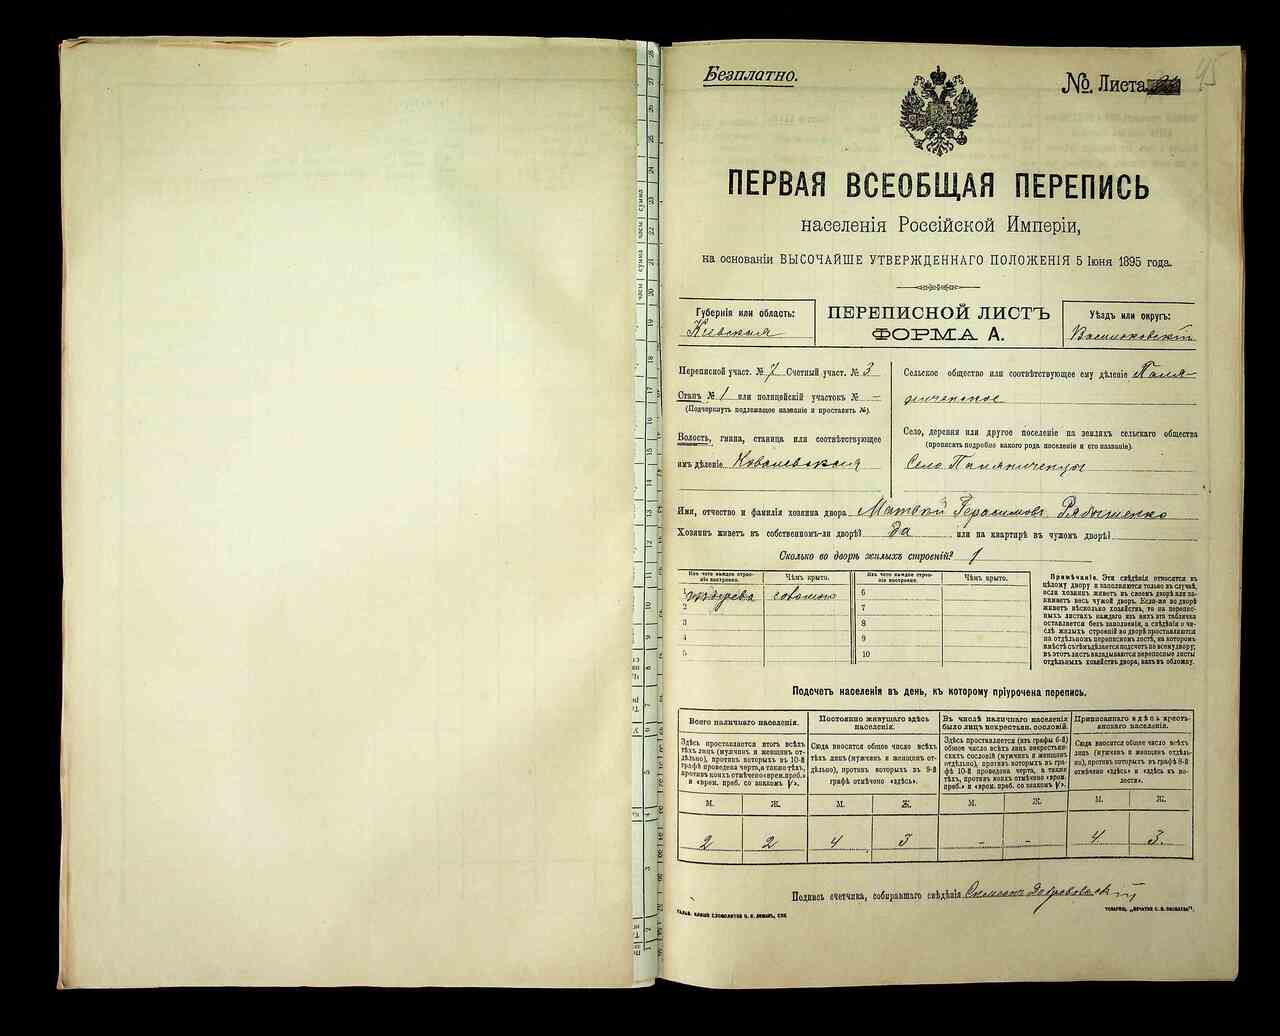 Безплатно.
№ Листа
45
ПЕРВАЯ ВСЕОБЩАЯ ПЕРЕПИСЬ
населенія Россійской Имперіи,
на основаніи ВЫСОЧАЙШЕ УТВЕРЖДЕННАГО ПОЛОЖЕНІЯ 5 Іюня 1895 года.
Губернія или область:
Кіевская
ПЕРЕПИСНОЙ ЛИСТЪ
ФОРМА А.
Уѣздъ или округъ:
Васильковскій
Переписной участ. № 7 Счетный участ. № 3
Станъ № 1 или полицейскій участокъ № –
(Подчеркнуть подлежащее названіе и проставить №).
Волость, гмина, станица или соотвѣтствующее
имъ дѣленіе Ковалевская
Сельское общество или соотвѣтствующее ему дѣленіе Паля-
ниченское
Село, деревня или другое поселеніе на земляхъ сельскаго общества
(прописать подробно какого рода поселеніе и его названіе).
Село Паляниченцы
Имя, отчество и фамилія хозяина двора Матвій Герасимовъ
Хозяинъ живетъ въ собственномъ-ли дворѣ? да или на квартирѣ въ чужомъ дворѣ?
Сколько во дворѣ жилыхъ строеній? 1
Изъ чего каждое строеніе построено.
Чѣмъ крыто.
Изъ чего каждое строеніе построено.
Чѣмъ крыто.
1 изъ дерева соломою 6
2 7
3 8
4 9
5 10
Примѣчаніе. Эти свѣдѣнія относятся къ
цѣлому двору и заполняются только въ случаѣ,
если хозяинъ живетъ въ своемъ дворѣ или за-
нимаетъ весь чужой дворъ. Если-же во дворѣ
живетъ нѣсколько хозяйствъ, то на перепис-
ныхъ листахъ каждаго изъ нихъ эта табличка
оставляется безъ заполненія, а свѣдѣнія о чи-
слѣ жилыхъ строеній во дворѣ проставляются
на отдѣльномъ переписномъ листѣ, на которомъ
вмѣстѣ съ тѣмъ дѣлается подсчетъ по всему двору;
въ этотъ листъ вкладываются переписные листы
отдѣльныхъ хозяйствъ двора, какъ въ обложку.
Подсчетъ населенія въ день, къ которому пріурочена перепись.
Всего наличнаго населенія.
Здѣсь проставляется итогъ всѣхъ
тѣхъ лицъ (мужчинъ и женщинъ от-
дѣльно), противъ которыхъ въ 10-й
графѣ проведена черта, а также тѣхъ,
противъ коихъ отмѣчено «врем. преб.»
и «врем. преб. со знакомъ V».
Постоянно живущаго здѣсь
населенія.
Сюда вносится общее число всѣхъ
тѣхъ лицъ (мужчинъ и женщинъ от-
дѣльно), противъ которыхъ въ 9-й
графѣ отмѣчено «здѣсь».
Въ числѣ наличнаго населенія
было лицъ некрестьян. сословій.
Здѣсь проставляется (изъ графы 6-й)
общее число всѣхъ лицъ некрестьян-
скихъ сословій (мужчинъ и женщинъ
отдѣльно), противъ которыхъ въ гра-
фѣ 10-й проведена черта, а также
тѣхъ, противъ коихъ отмѣчено «врем.
преб.» и «врем. преб. со знакомъ V».
Приписаннаго здѣсь кресть-
янскаго населенія.
Сюда вносится общее число всѣхъ
лицъ (мужчинъ и женщинъ отдѣль-
но), противъ которыхъ въ графѣ 8-й
отмѣчено «здѣсь» и «здѣсь въ во-
лости».
М. Ж. М. Ж. М. Ж. М. Ж.
2 2 4 3 - - 4 3
Подпись счетчика, собиравшаго свѣдѣнія